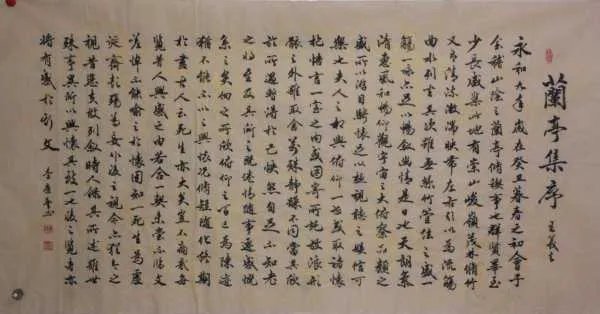 蘭亭集序 王羲之
永和九年歲在癸丑暮春之初會于
會稽山陰之蘭亭修禊事也群賢畢至
少長咸集此地有崇山峻嶺茂林修竹
又有清流激湍映帶左右引以為流觴
曲水列坐其次雖無絲竹管弦之盛一
觴一詠亦足以暢敘幽情是日也天朗氣
清惠風和暢仰觀宇宙之大俯察品類之
盛所以游目騁懷足以極視聽之娛信可
樂也夫人之相與俯仰一世或取諸懷
抱悟言一室之內或因寄所託放浪形
骸之外雖取舍萬殊靜躁不同當其欣
於所遇暫得於己快然自足不知老
之將至及其所之既倦情隨事遷感慨
係之矣向之所欣俯仰之間已為陳迹
猶不能不以之興懷況修短隨化終期
於盡古人云死生亦大矣豈不痛哉每
覽昔人興感之由若合一契未嘗不臨文
嗟悼不能喻之於懷固知一死生為虛
誕齊彭殤為妄作後之視今亦猶今之
視昔悲夫故列敘時人錄其所述雖世
殊事異所以興懷其致一也後之覽者亦
將有感於斯文